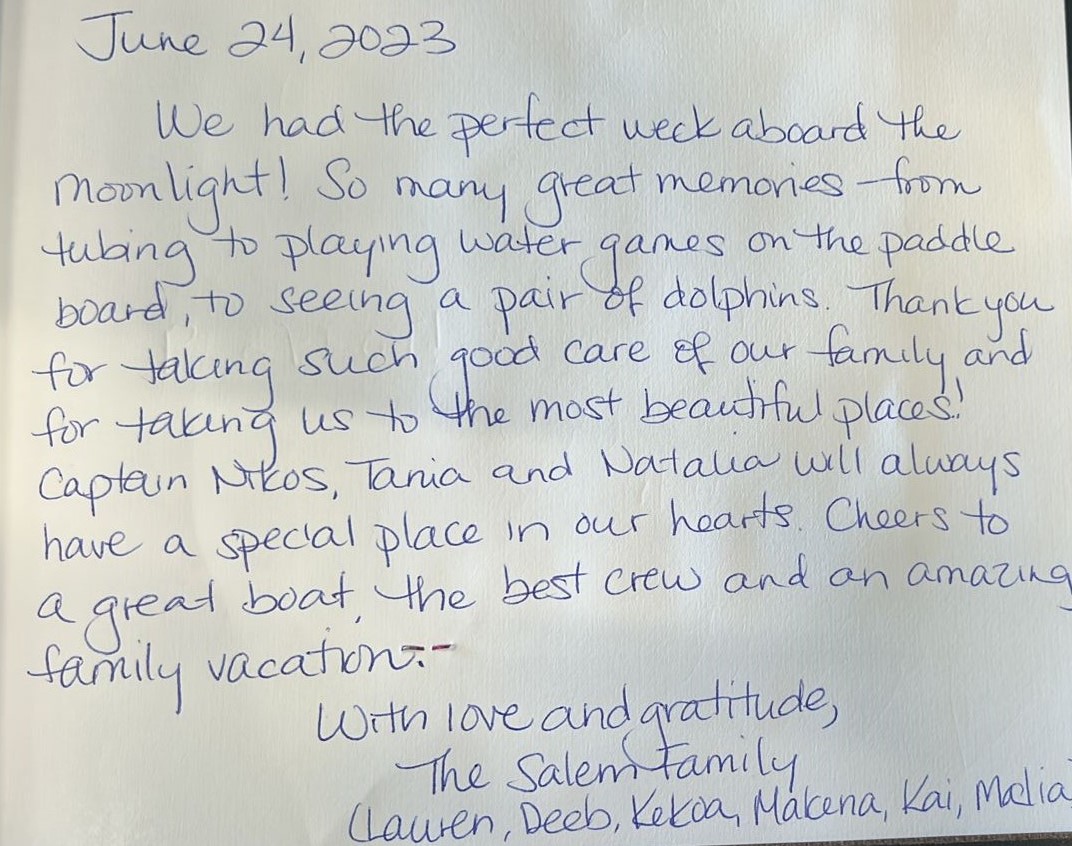 June 24, 2023
We had the perfect week aboard the
Moonlight! So many great memories - from
tubing to playing water games on the paddle
board, to seeing a pair of dolphins. Thank you
for taking such good care of our family and
for taking us to the most beautiful places!
Captain Nikos, Tania and Natalia will always
have a special place in our hearts. Cheers to
a great boat, the best crew and an amazing
family vacation.--
With love and gratitude,
The Salem Family
(Lauren, Deeb, Kekoa, Makena, Kai, Malia